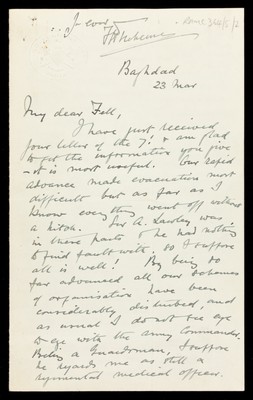 . . . I ever
Baghdad
23 Mar
My dear Fell,
I have just received
your letter of the 7th & am glad
to get the information you give
— it is most useful. Our rapid
advance made evacuation most
difficult but as far as I
know everything went off without
a hitch. Sir A. Lawley was
in these parts & he had nothing
to find fault with, so I suppose
all is well! By being so
far advanced all our schemes
of organisation have been
considerably disturbed, and
as usual I do not see eye
to eye with the Army Commander.
Being a Guardsman, I suppose
he regards me as still a
regimental medical officer.